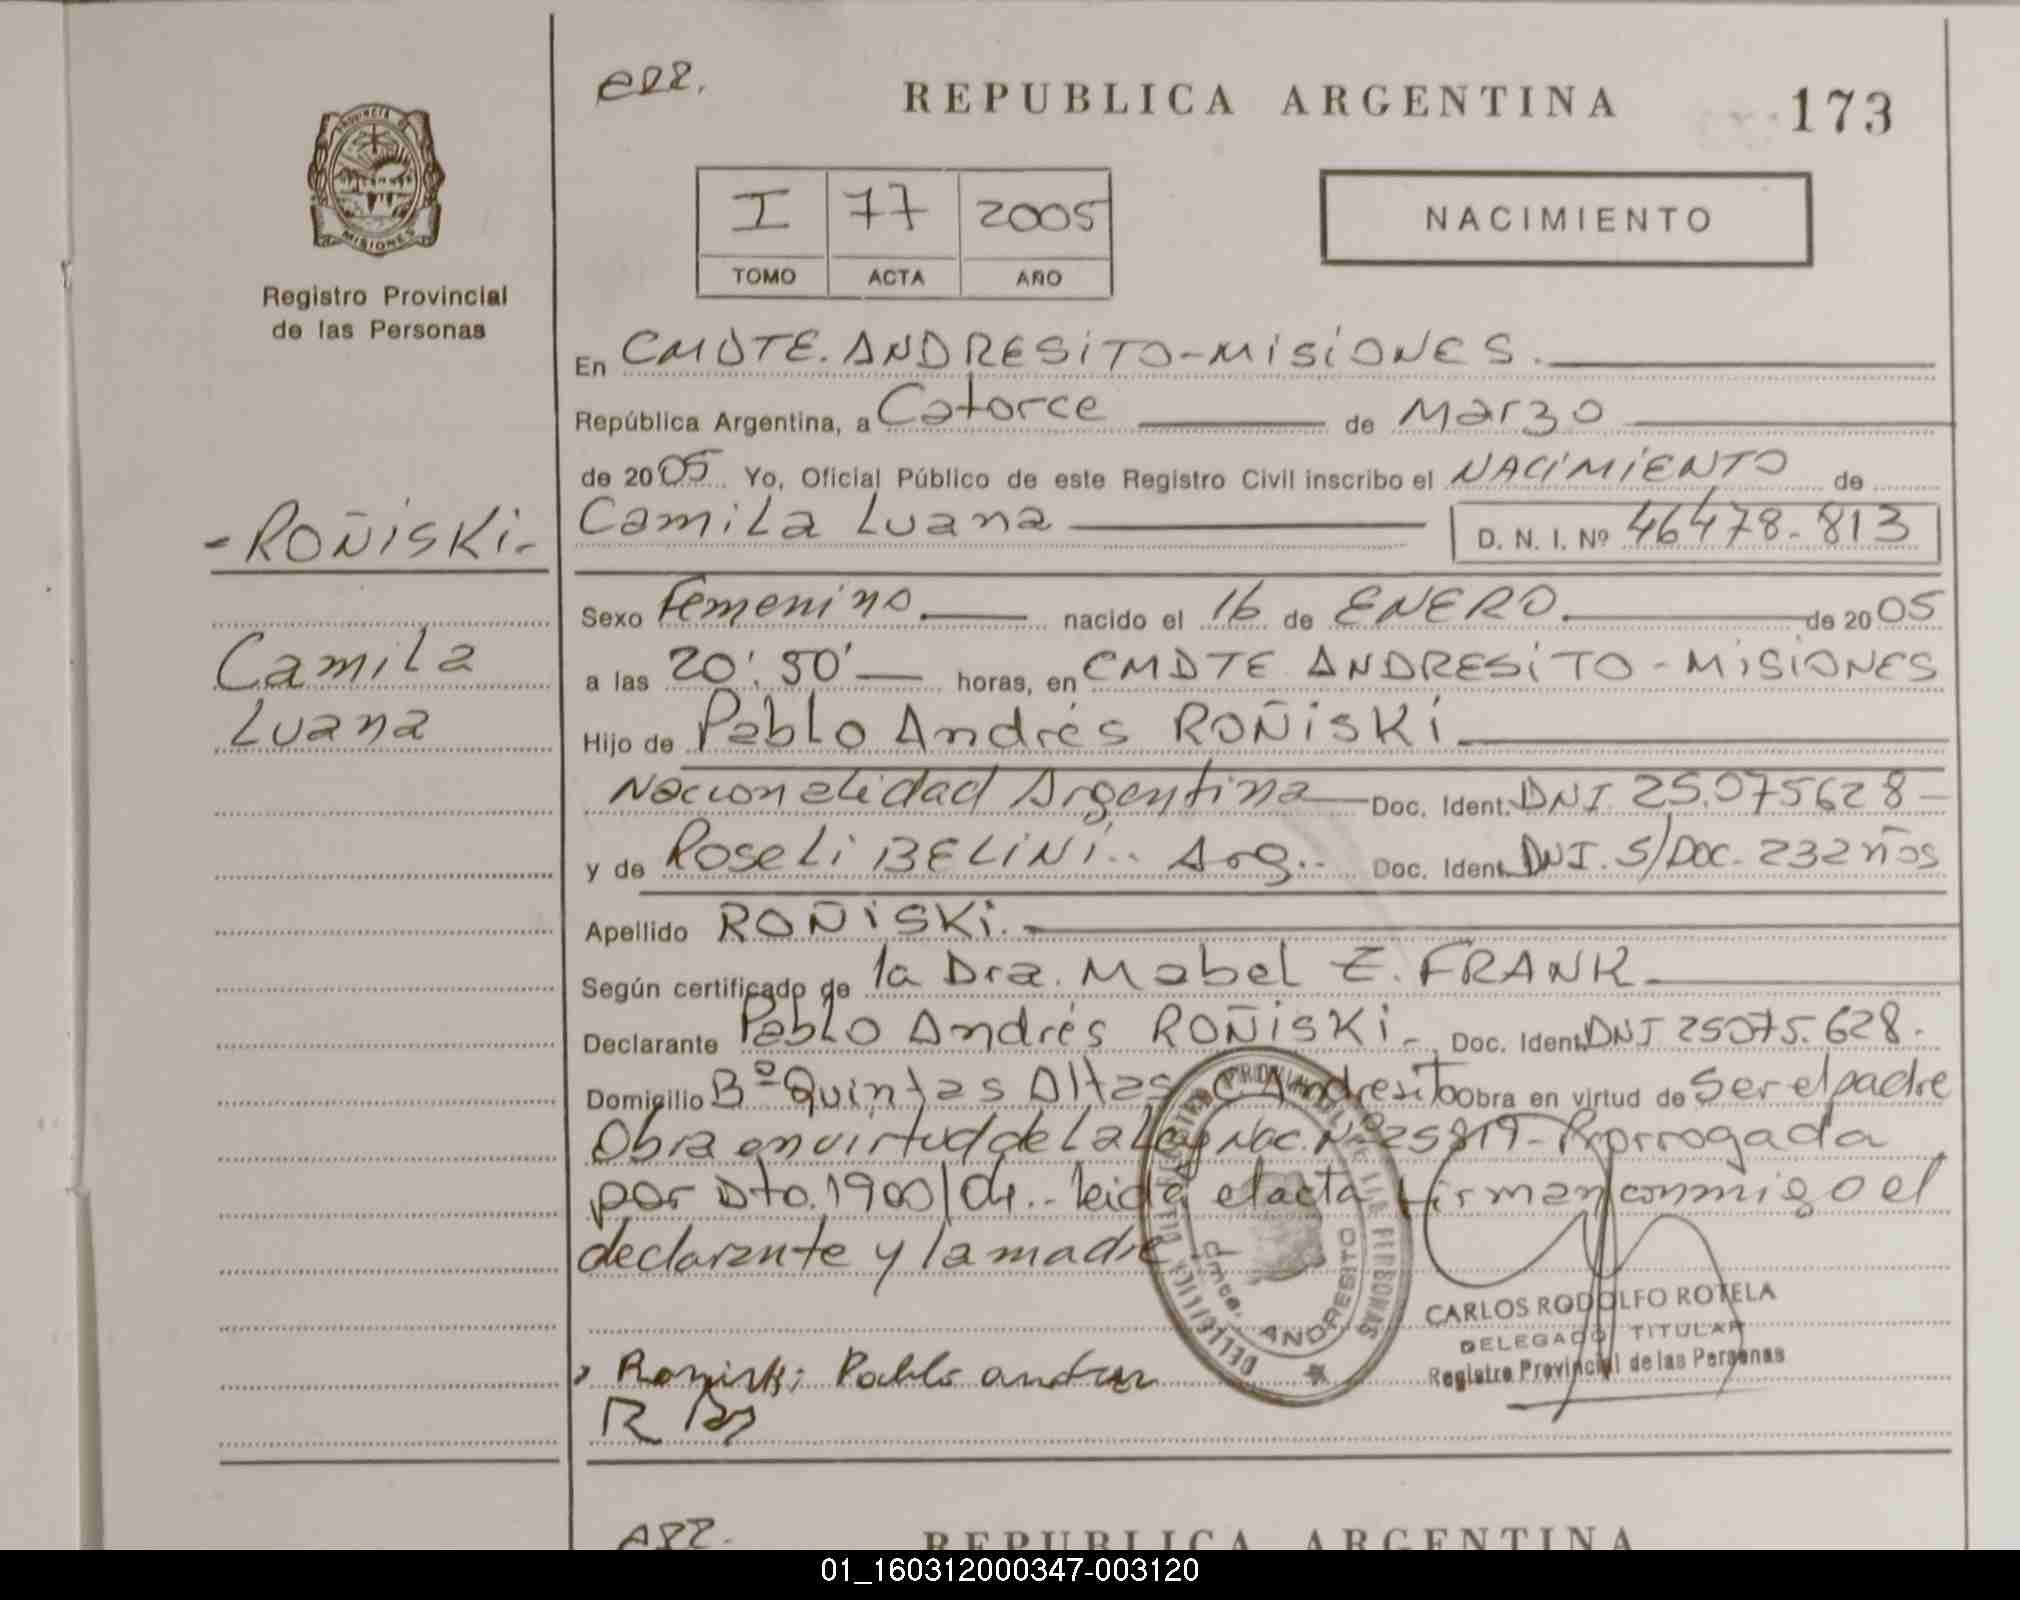 err.
REPUBLICA ARGENTINA 173
PROVINCIA DE
MISIONES
Registro Provincial
de las Personas
I 77 2005
TOMO ACTA AÑO
NACIMIENTO
En CMDTE. ANDRESiTO-MiSiONES.
República Argentina, a Catorce de Marzo
de 2005 Yo, Oficial Público de este Registro Civil inscribo el NACiMiENTO de
-ROÑiSKi- Camila Luana D. N. I. Nº 46478-813
Sexo Femenino nacido el 16 de ENERO de 2005
Camila
a las 20:50' horas, en CMDTE ANDRESiTO-MiSiONES
Luana
Hijo de Pablo Andrés ROÑiSKi
Nacionalidad Argentina Doc. Ident. DNI. 25.075628-
y de Roseli BELiNi.. Arg.. Doc. Ident. DNI. S/Doc. 232ños
Apellido ROÑiSKi.
Según certificado de la Dra. Mabel E. FRANK
Declarante Pablo Andrés ROÑiSKi- Doc. Ident. DNI 25075.628.
Domicilio Bº Quintas Altas C. Andresito Obra en virtud de Ser el padre
Obra en virtud de La Ley Nac. Nº 25819-Prorrogada
por Dto. 1900/04.. leida el acta firman conmigo el
declarante y la madre
Cmte. ANDRESITO
CARLOS RODOLFO ROTELA
DELEGADO TITULAR
Registro Provincial de las Personas
Roniski Pablo andres
REPUBLICA ARGENTINA
01_160312000347-003120